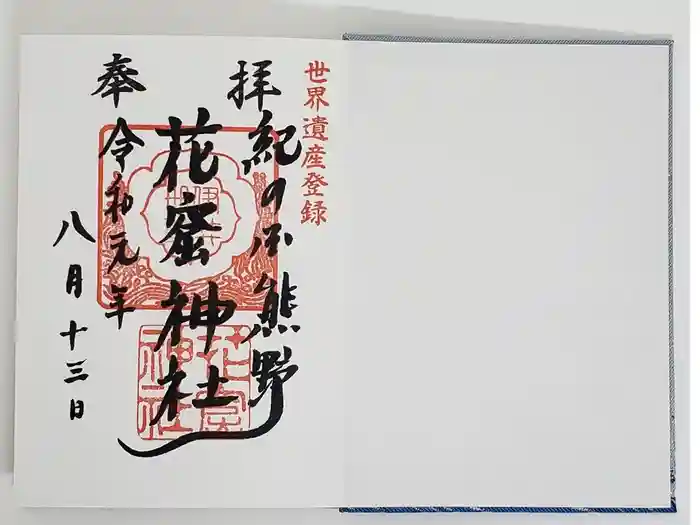 世界遺産登録
奉拝
紀の国熊野
花窟神社
令和元年
八月十三日
花窟神社